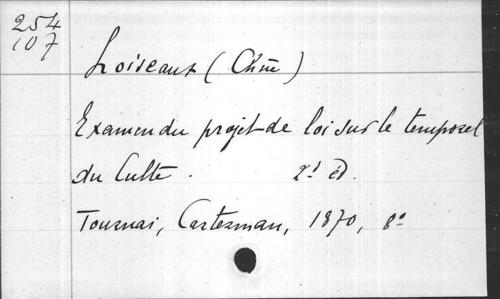 254
107
Loiseaux (Chne)
Examen du projet de loi sur le temporel
du Culte. 2d éd.
Tournai, Casterman, 1870, 8°